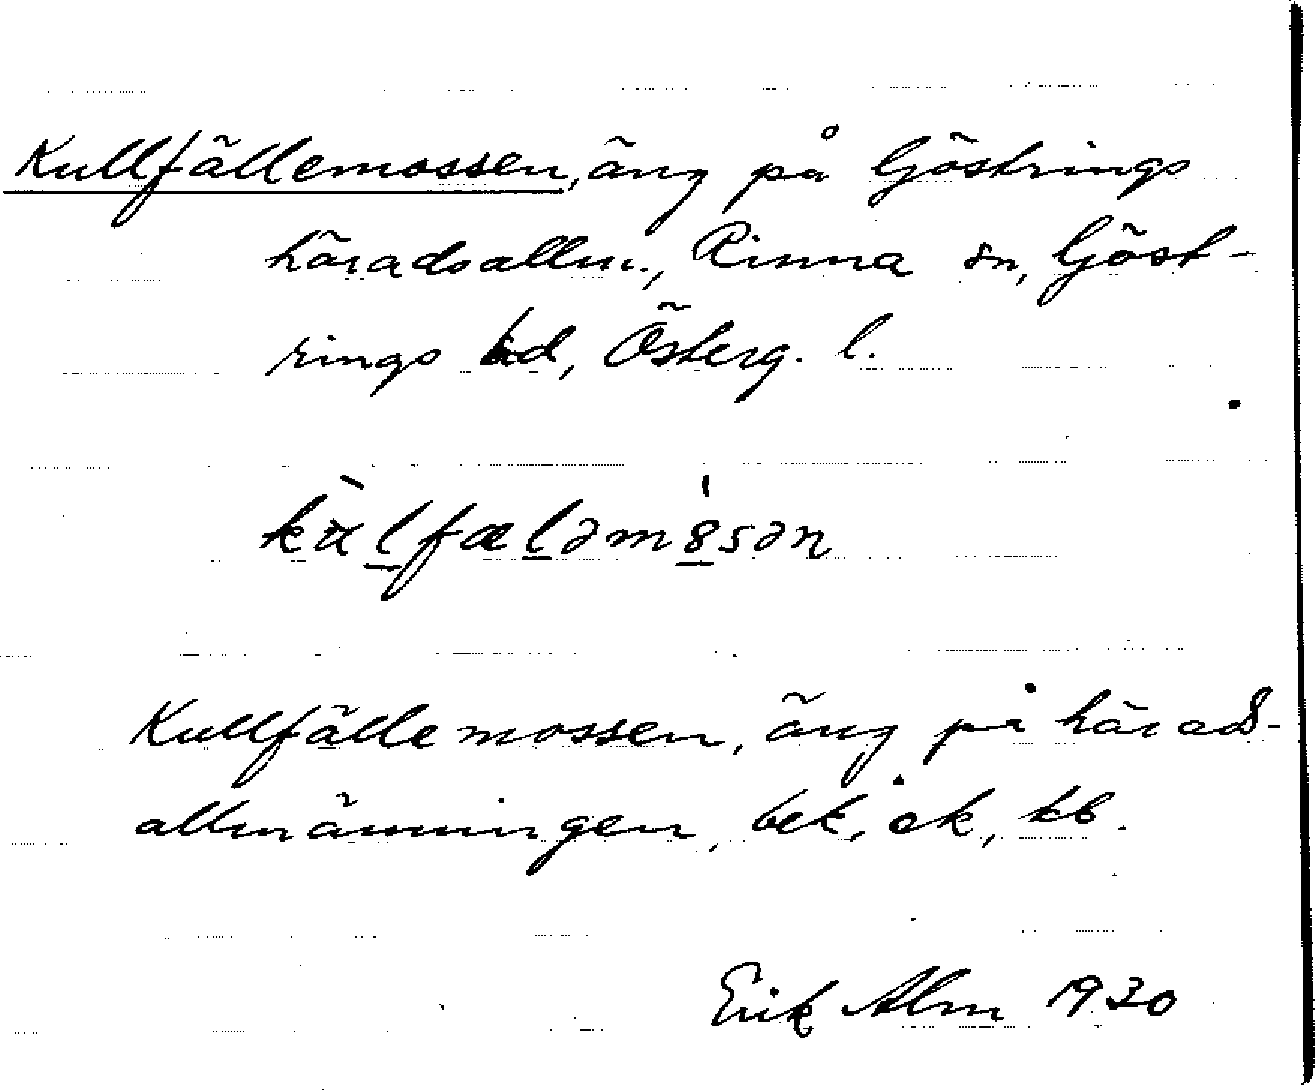 Kullfällemossen, äng på Göstrings
häradsallm., Rinna sn, Göst-
rings hd, Österg. l.
Kullfällemossen, äng på härads-
allmänningen, bek. ek, kb.
Erik Alm 1930